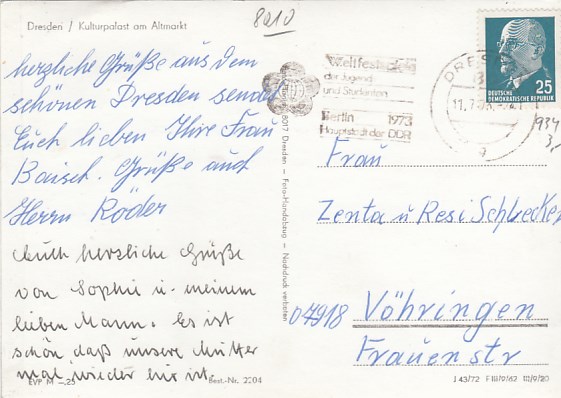 Dresden / Kulturpalast am Altmarkt
8010
herzliche Grüße aus dem
schönen Dresden sendet
Euch lieben Ihre Frau
Baisch. Grüße auch
Herrn Röder
Auch herzliche Grüße
von Sophie u. meinem
lieben Mann. Es ist
schön, daß unsere Mutter
mal wieder hir ist.
EVP M -.25
Best.-Nr. 2204
8017 Dresden — Foto-Handabzug — Nachdruck verboten
Weltfestspiele
der Jugend
und Studenten
Berlin 1973
Hauptstadt der DDR
DRES
25
DEUTSCHE
DEMOKRATISCHE REPUBLIK
1934
3,-
Frau
Zenta u Resi Schlecker
07918 Vöhringen
Frauenstr
J 43/72 F III/9/62 III/9/20